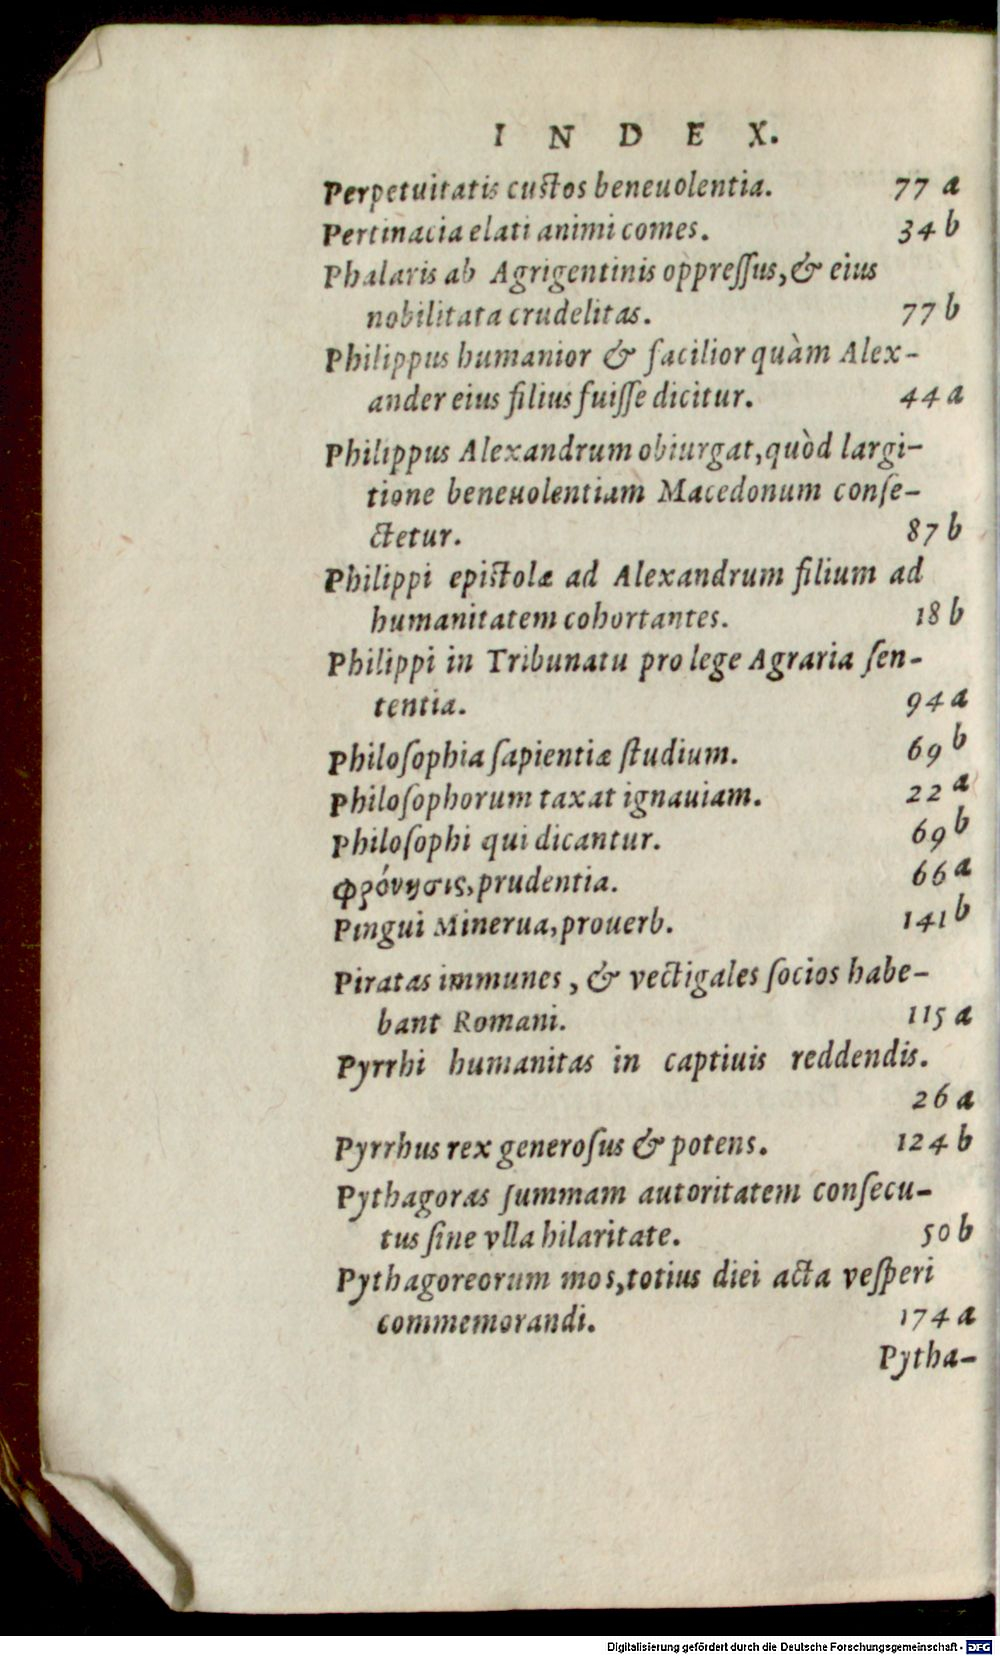 INDEX.
Perpetuitatis custos beneuolentia. 77 a
Pertinacia elati animi comes. 34 b
Phalaris ab Agrigentinis oppreſſus, & eius
nobilitata crudelitas. 77 b
Philippus humanior & facilior quàm Alex-
ander eius filius fuiſſe dicitur. 44 a
Philippus Alexandrum obiurgat, quòd largi-
tione beneuolentiam Macedonum conſe-
ctetur. 87 b
Philippi epistolæ ad Alexandrum filium ad
humanitatem cohortantes. 18 b
Philippi in Tribunatu pro lege Agraria ſen-
tentia. 94 a
Philoſophia ſapientiæ ſtudium. 69 b
Philoſophorum taxat ignauiam. 22 a
Philoſophi qui dicantur. 69 b
φρόνησις, prudentia. 66 a
Pingui Minerua, prouerb. 141 b
Piratas immunes, & vectigales ſocios habe-
bant Romani. 115 a
Pyrrhi humanitas in captiuis reddendis.
26 a
Pyrrhus rex generoſus & potens. 124 b
Pythagoras ſummam autoritatem conſecu-
tus ſine vlla hilaritate. 50 b
Pythagoreorum mos, totius diei acta veſperi
commemorandi. 174 a
Pytha-
Digitalisierung gefördert durch die Deutsche Forschungsgemeinschaft - DFG